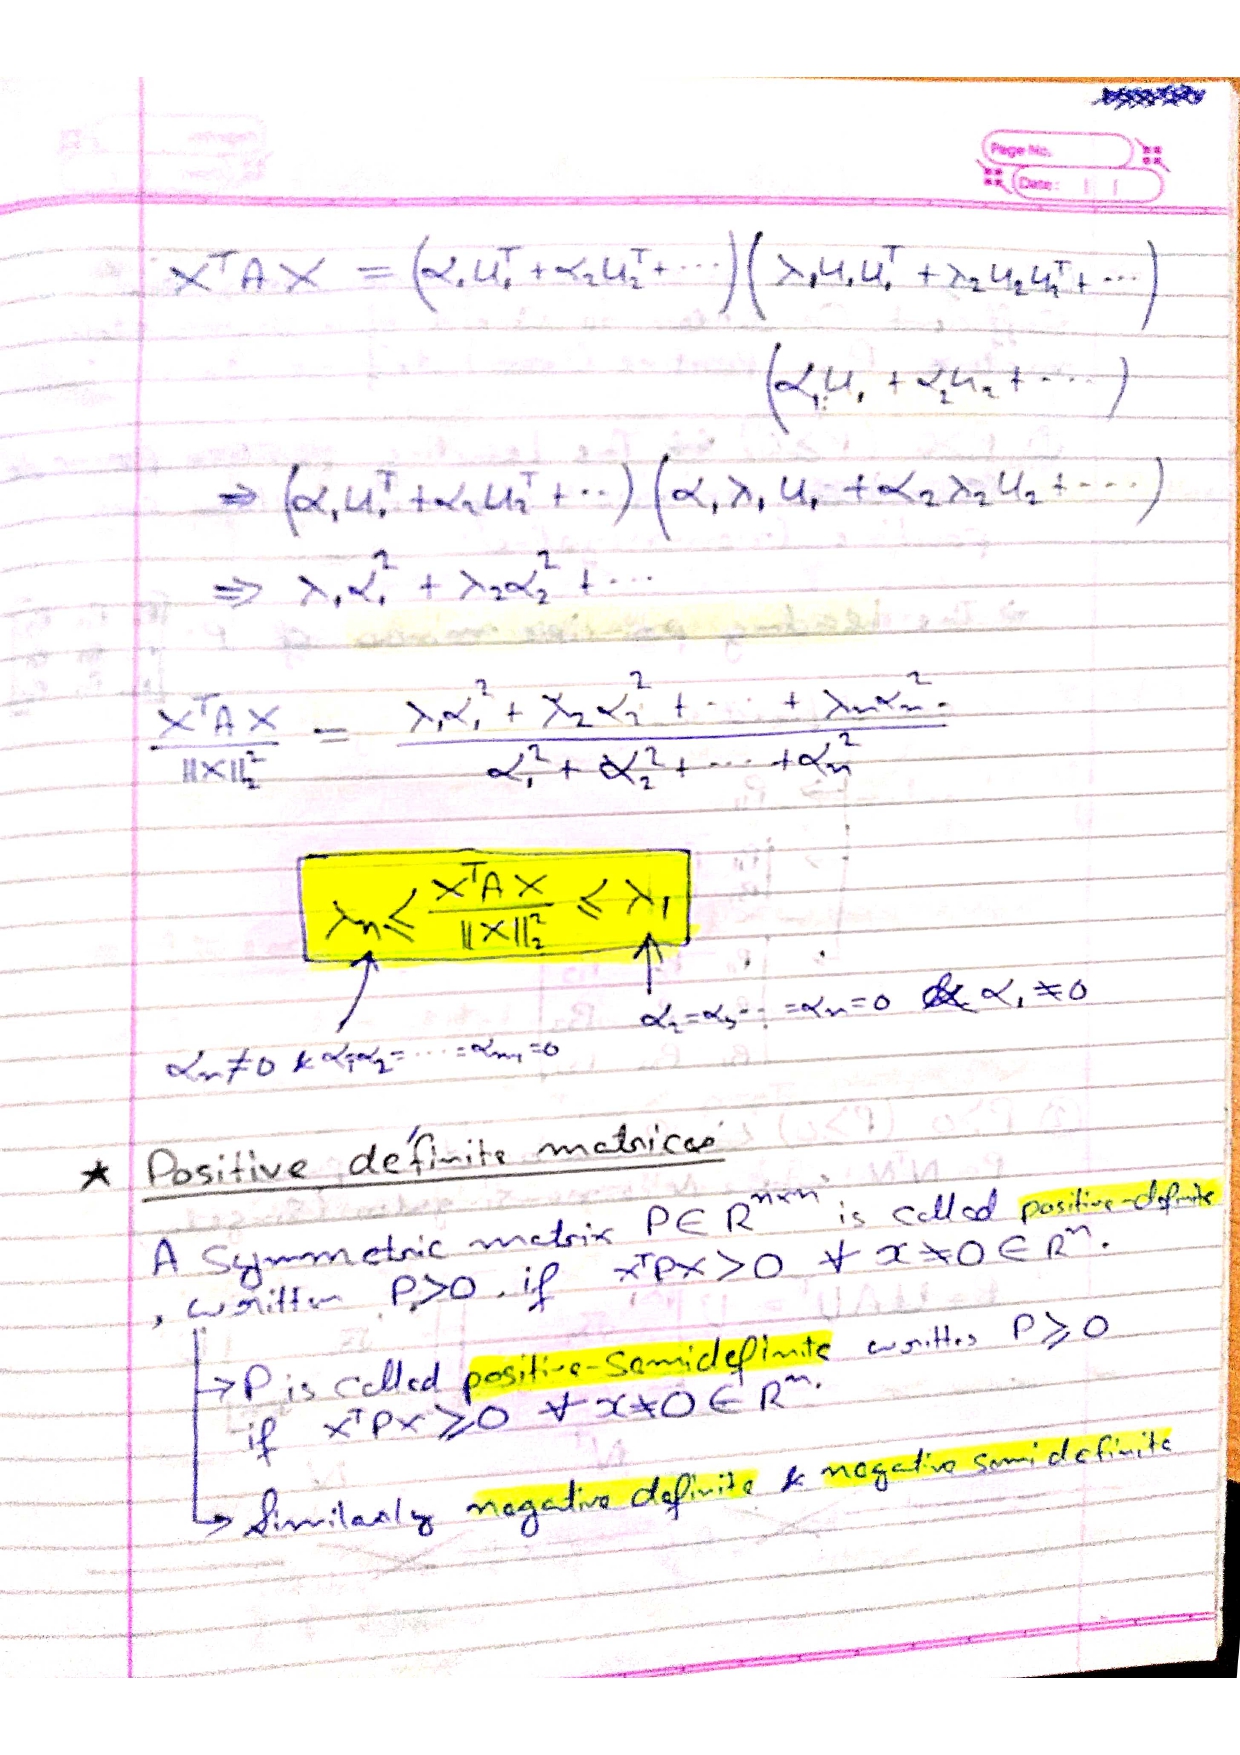 Page No.
Date:
X^T A X = (α₁u₁^T + α₂u₂^T + ···)(λ₁u₁u₁^T + λ₂u₂u₂^T + ···)
(α₁u₁ + α₂u₂ + ····)
⇒ (α₁u₁^T + α₂u₂^T + ··)(α₁λ₁u₁ + α₂λ₂u₂ + ···)
⇒ λ₁α₁² + λ₂α₂² + ···
X^T A X / ||X||₂² = (λ₁α₁² + λ₂α₂² + ··· + λₙαₙ²) / (α₁² + α₂² + ··· + αₙ²)
λₙ ≤ X^T A X / ||X||₂² ≤ λ₁
α₂=α₃··=αₙ=0 & α₁≠0
αₙ≠0 & α₁=α₂=···=αₙ₋₁=0
★ Positive definite matrices
A symmetric matrix P∈R^{n×n} is called positive-definite
, written P>0. if x^T P x > 0 ∀ x≠0∈R^n.
→ P is called positive-semidefinite written P≥0
if x^T P x ≥ 0 ∀ x≠0∈R^n.
→ Similarly negative definite & negative semidefinite